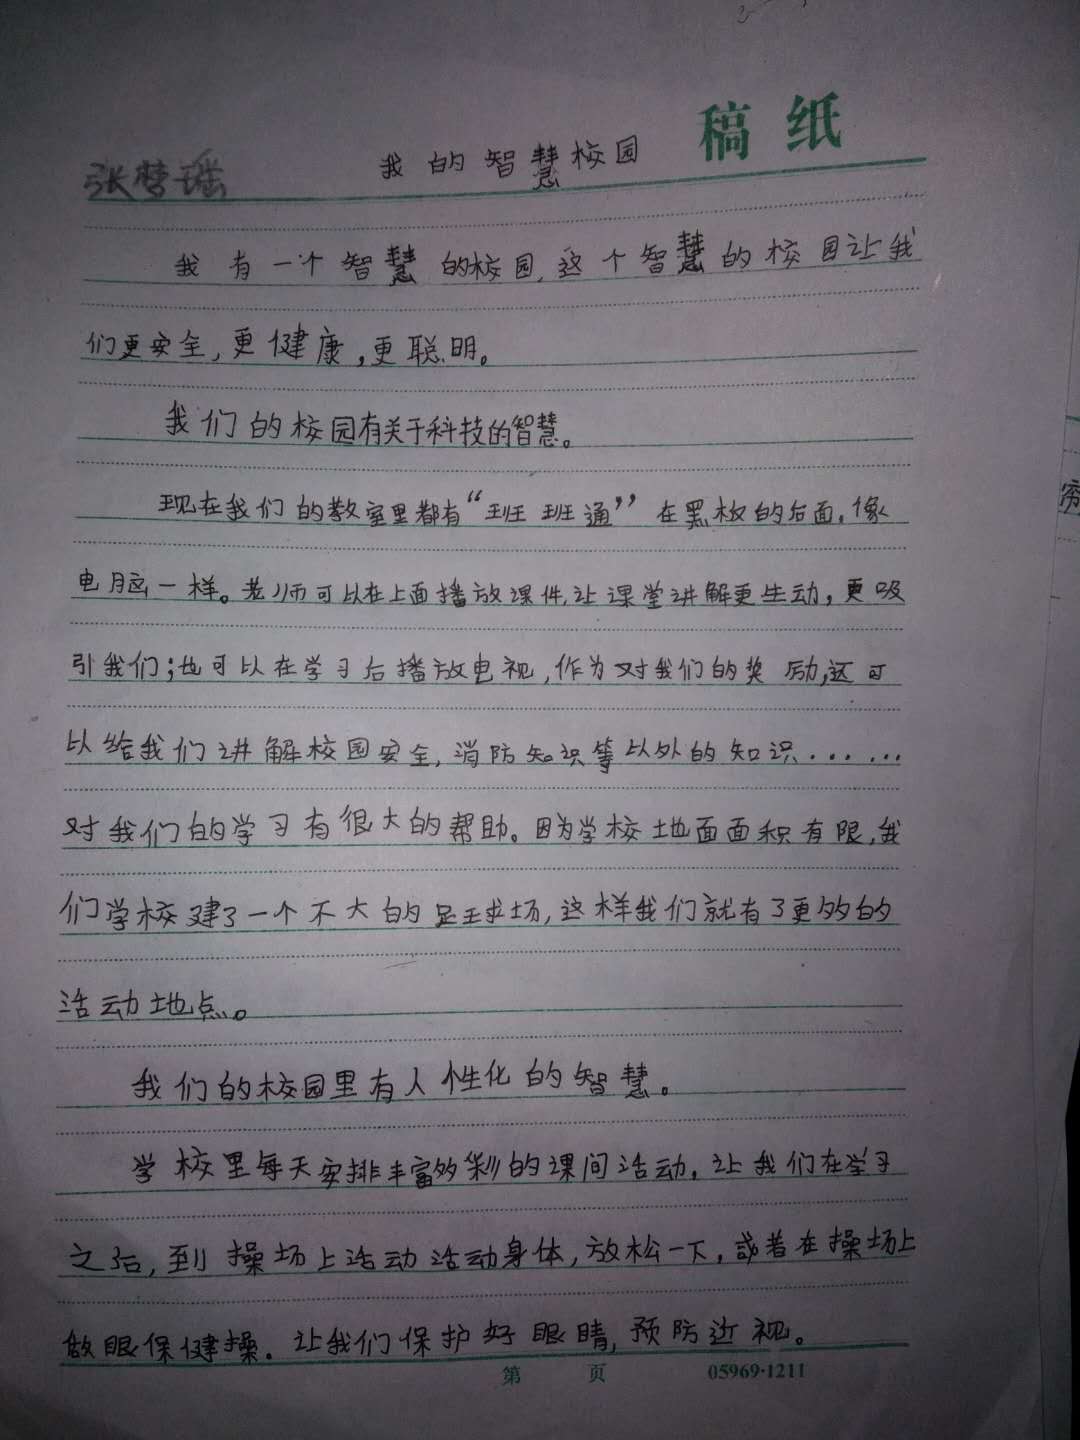 稿纸
张梦瑶 我的智慧校园
我有一个智慧的校园,这个智慧的校园让我
们更安全,更健康,更聪明。
我们的校园有关于科技的智慧。
现在我们的教室里都有“班班通”在黑板的后面,像
电脑一样。老师可以在上面播放课件,让课堂讲解更生动,更吸
引我们;也可以在学习后播放电视,作为对我们的奖励,还可
以给我们讲解校园安全,消防知识等以外的知识......
对我们的学习有很大的帮助。因为学校地面面积有限,我
们学校建了一个不大的足球场,这样我们就有了更多的
活动地点。
我们的校园里有人性化的智慧。
学校里每天安排丰富多彩的课间活动,让我们在学习
之后,到操场上活动活动身体,放松一下,或者在操场上
做眼保健操。让我们保护好眼睛,预防近视。
第 页 05969·1211